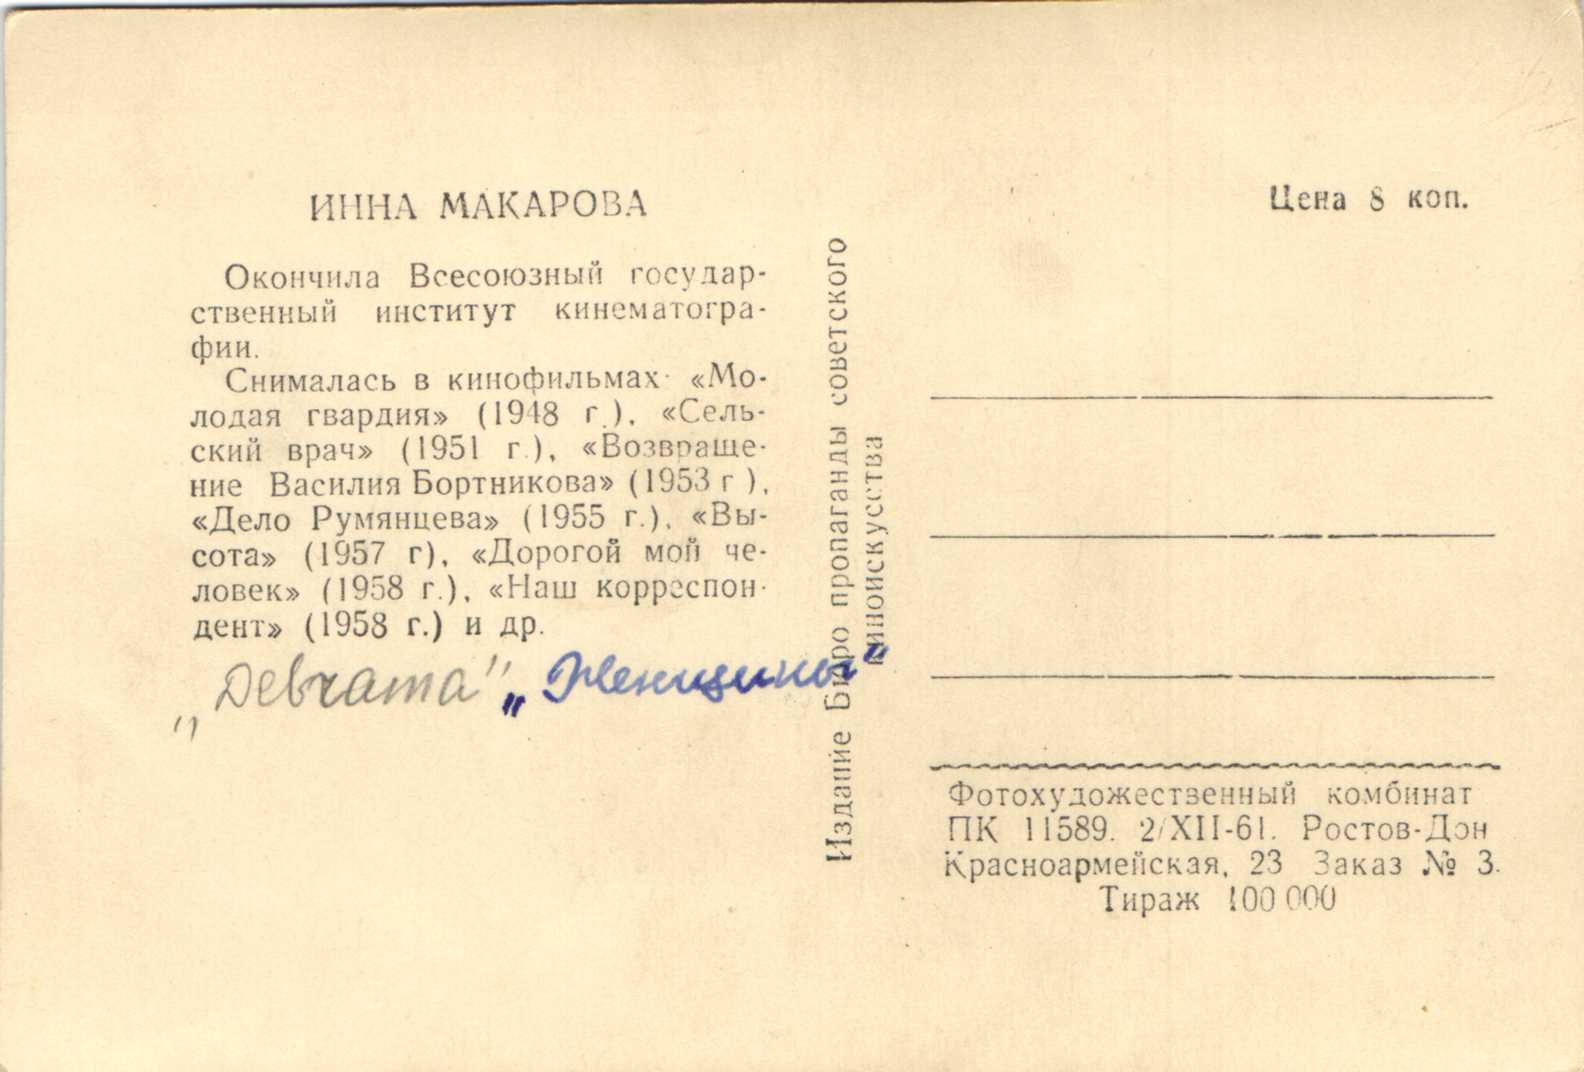 ИННА МАКАРОВА
Окончила Всесоюзный государ-
ственный институт кинематогра-
фии.
Снималась в кинофильмах: «Мо-
лодая гвардия» (1948 г.), «Сель-
ский врач» (1951 г.), «Возвраще-
ние Василия Бортникова» (1953 г.),
«Дело Румянцева» (1955 г.), «Вы-
сота» (1957 г), «Дорогой мой че-
ловек» (1958 г.), «Наш корреспон-
дент» (1958 г.) и др.
„Девчата" „Женщины"
Издание Бюро пропаганды советского
киноискусства
Цена 8 коп.
Фотохудожественный комбинат
ПК 11589. 2/XII-61. Ростов-Дон
Красноармейская, 23 Заказ № 3.
Тираж 100 000